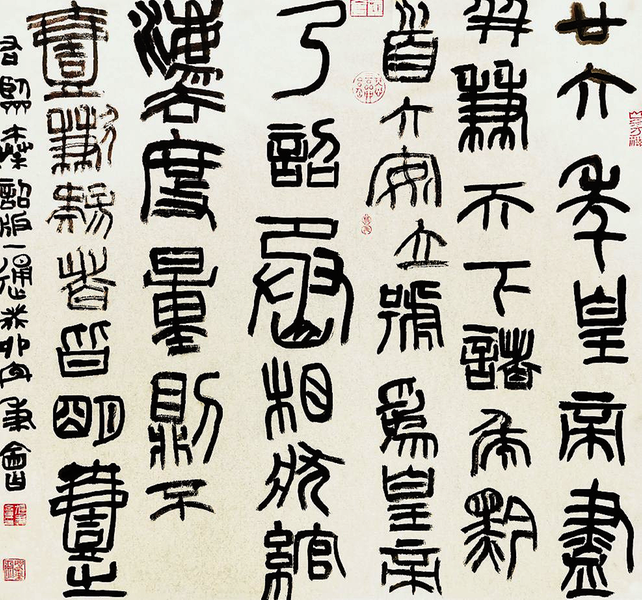 廿六年皇帝盡
并兼天下諸侯黔
首大安立號為皇帝
乃詔丞相狀綰
灋度量則不
壹歉疑者皆明壹之
右臨秦詔版一通癸卯